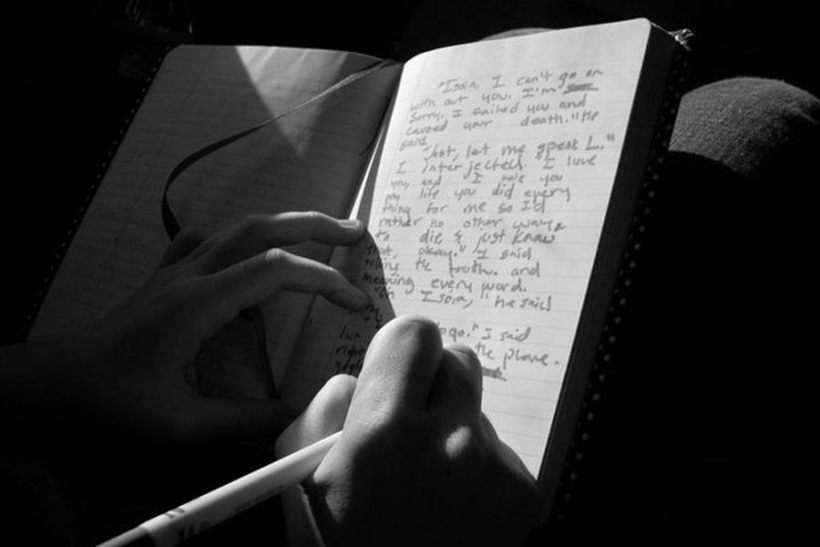 "Isoia, I can't go on
with out you. I'm
sorry. I failed you and
caused your death." He
said.
"but, let me speak L."
I interjected. "I love
you, and I owe you
my life you did every
thing for me so I'd
rather no other way
to die, & just know
that, okay." I said
telling the truth. and
meaning every word.
"Oh Isoia," he said
go." I said
right the phone.